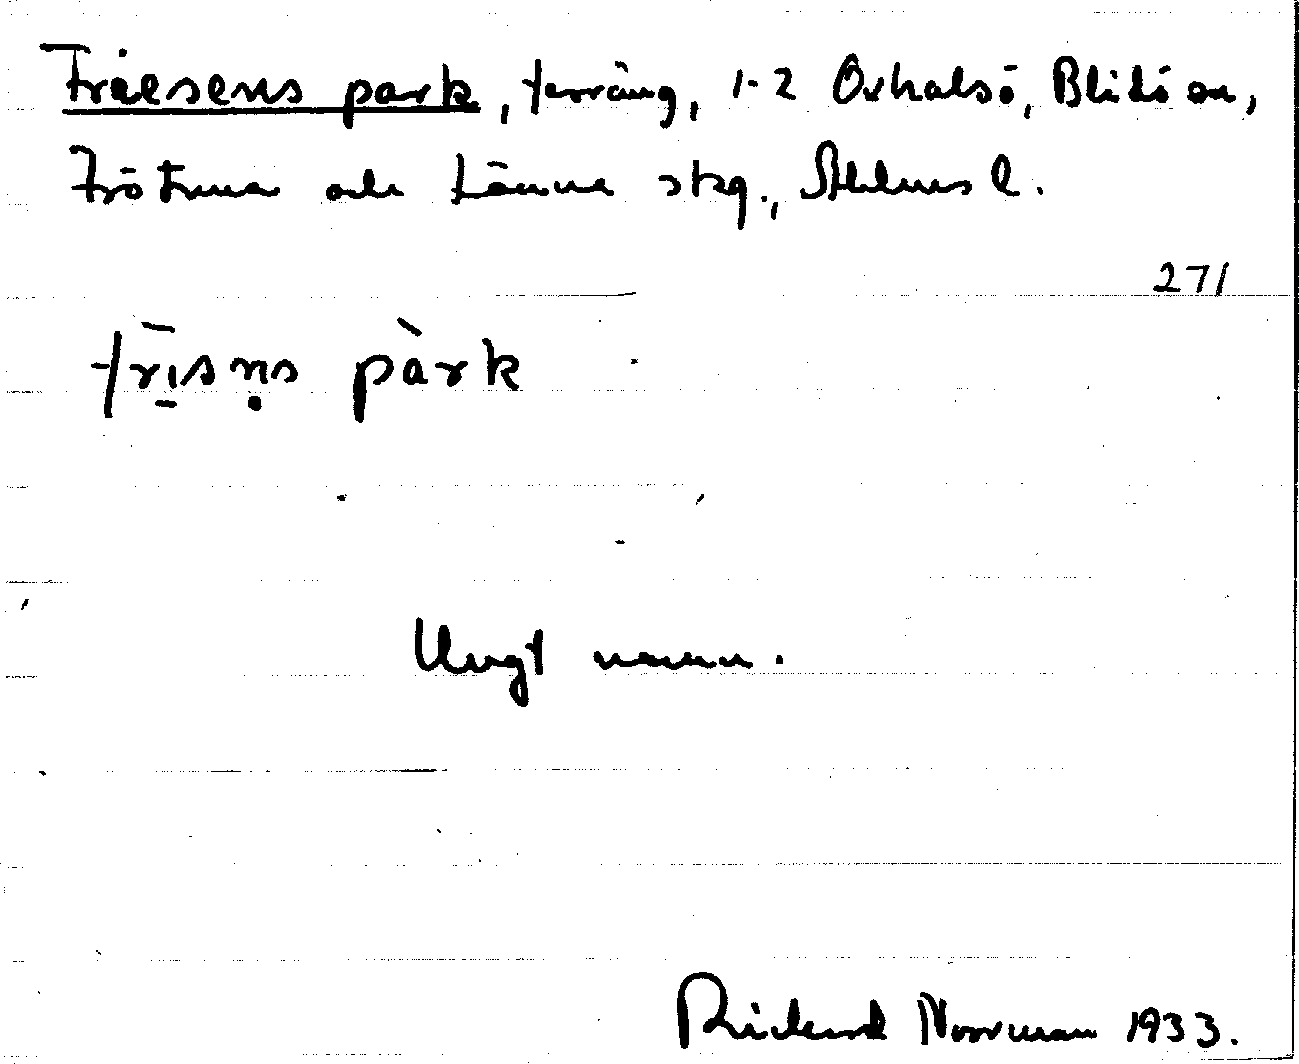 Friesens park, terräng, 1-2 Oxhalsö, Blidö sn,
Frötuna och Länna skg., Sthlms l.
271
frīsn̥s pàrk
Ungt namn.
Rickard Norrman 1933.